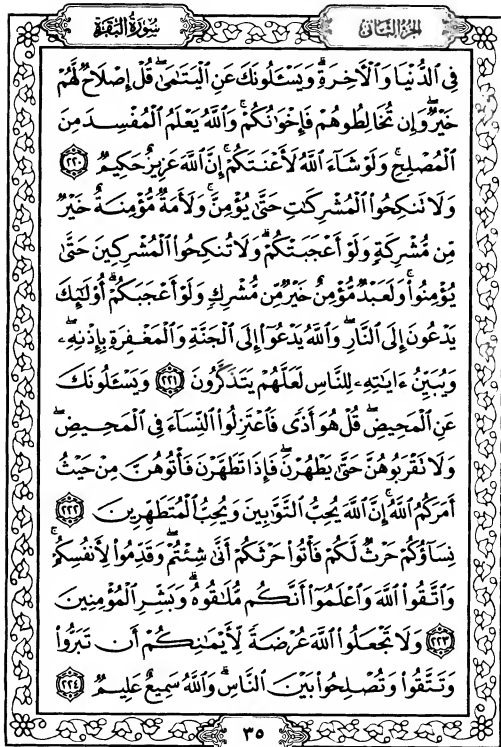 سُورَةُ البَقَرَةِ
الجُزْءُ الثَّانِي
فِى ٱلدُّنْيَا وَٱلْـَٔاخِرَةِ ۗ وَيَسْـَٔلُونَكَ عَنِ ٱلْيَتَـٰمَىٰ ۖ قُلْ إِصْلَاحٌ لَّهُمْ
خَيْرٌ ۖ وَإِن تُخَالِطُوهُمْ فَإِخْوَٰنُكُمْ ۚ وَٱللَّهُ يَعْلَمُ ٱلْمُفْسِدَ مِنَ
ٱلْمُصْلِحِ ۚ وَلَوْ شَآءَ ٱللَّهُ لَأَعْنَتَكُمْ ۚ إِنَّ ٱللَّهَ عَزِيزٌ حَكِيمٌ ٢٢٠
وَلَا تَنكِحُوا۟ ٱلْمُشْرِكَـٰتِ حَتَّىٰ يُؤْمِنَّ ۚ وَلَأَمَةٌ مُّؤْمِنَةٌ خَيْرٌ
مِّن مُّشْرِكَةٍ وَلَوْ أَعْجَبَتْكُمْ ۗ وَلَا تُنكِحُوا۟ ٱلْمُشْرِكِينَ حَتَّىٰ
يُؤْمِنُوا۟ ۚ وَلَعَبْدٌ مُّؤْمِنٌ خَيْرٌ مِّن مُّشْرِكٍ وَلَوْ أَعْجَبَكُمْ ۗ أُو۟لَـٰٓئِكَ
يَدْعُونَ إِلَى ٱلنَّارِ ۖ وَٱللَّهُ يَدْعُوٓا۟ إِلَى ٱلْجَنَّةِ وَٱلْمَغْفِرَةِ بِإِذْنِهِۦ ۖ
وَيُبَيِّنُ ءَايَـٰتِهِۦ لِلنَّاسِ لَعَلَّهُمْ يَتَذَكَّرُونَ ٢٢١ وَيَسْـَٔلُونَكَ
عَنِ ٱلْمَحِيضِ ۖ قُلْ هُوَ أَذًى فَٱعْتَزِلُوا۟ ٱلنِّسَآءَ فِى ٱلْمَحِيضِ ۖ
وَلَا تَقْرَبُوهُنَّ حَتَّىٰ يَطْهُرْنَ ۖ فَإِذَا تَطَهَّرْنَ فَأْتُوهُنَّ مِنْ حَيْثُ
أَمَرَكُمُ ٱللَّهُ ۚ إِنَّ ٱللَّهَ يُحِبُّ ٱلتَّوَّٰبِينَ وَيُحِبُّ ٱلْمُتَطَهِّرِينَ ٢٢٢
نِسَآؤُكُمْ حَرْثٌ لَّكُمْ فَأْتُوا۟ حَرْثَكُمْ أَنَّىٰ شِئْتُمْ ۖ وَقَدِّمُوا۟ لِأَنفُسِكُمْ ۚ
وَٱتَّقُوا۟ ٱللَّهَ وَٱعْلَمُوٓا۟ أَنَّكُم مُّلَـٰقُوهُ ۗ وَبَشِّرِ ٱلْمُؤْمِنِينَ
٢٢٣ وَلَا تَجْعَلُوا۟ ٱللَّهَ عُرْضَةً لِّأَيْمَـٰنِكُمْ أَن تَبَرُّوا۟
وَتَتَّقُوا۟ وَتُصْلِحُوا۟ بَيْنَ ٱلنَّاسِ ۗ وَٱللَّهُ سَمِيعٌ عَلِيمٌ ٢٢٤
٣٥